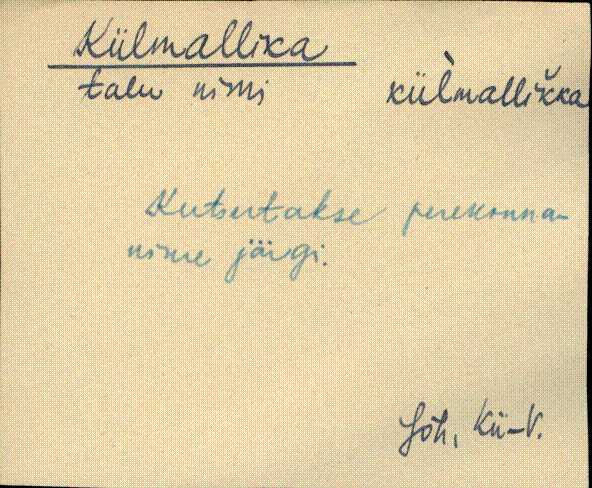 Külmallika
talu nimi kül̀mallikka
Kutsutakse perekonna-
nime järgi.
Jõh, Kü-V.